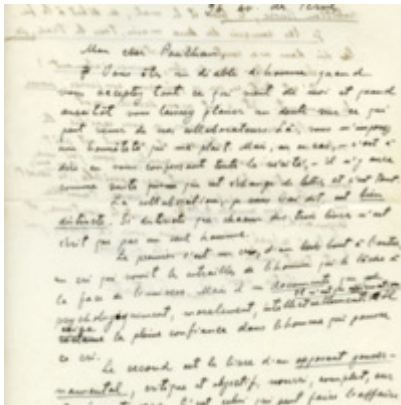 Mon cher Paulhan,
Vous êtes un diable d'homme quand
vous acceptez tout ce qui vient de moi et quand
aussitôt vous laissez planer un doute sur ce qui
peut venir de mes collaborateurs.
une humilité qui me plaît. Mais, en ce cas, – c'est à
dire en vous confessant toute la vérité, – il n'y aura
comme suite qu'un échange de lettres et c'est tout.
La collaboration, je vous l'ai dit, est bien
distincte. Si distincte que chacun des trois livres n'est
écrit que par un seul homme.
Le premier c'est un cri, d'un bout à l'autre,
un cri qui vomit les entrailles de l'homme qui le lâche à
la face de l'univers. Mais d'un documents que
psychologiquement, moralement, intellectuellement
exige la pleine confiance dans l'homme qui pousse
ce cri.
Le second est le livre d'un opposant gouver-
nemental, critique et objectif, nourri, complet, sur
c'est celui qui peut faire l'affaire